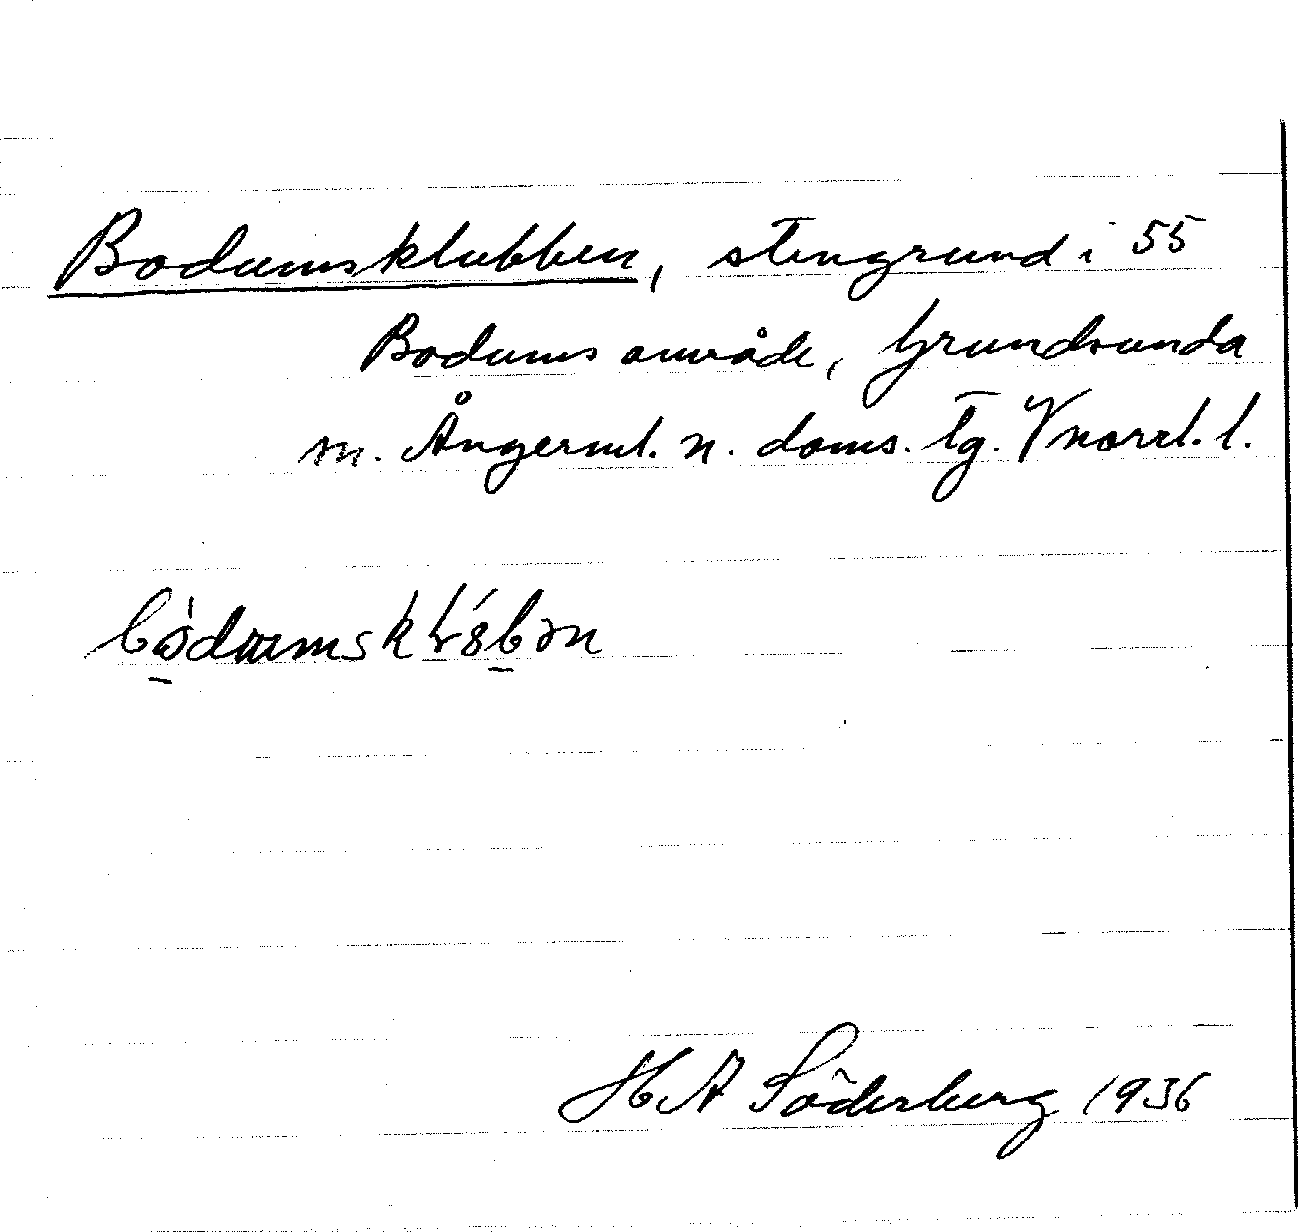 Bodumsklubben, stengrund i 55
Bodums område, Grundsunda
sn. Ångerml. n. doms. tg. Vnorrl. l.
H A Söderberg 1936